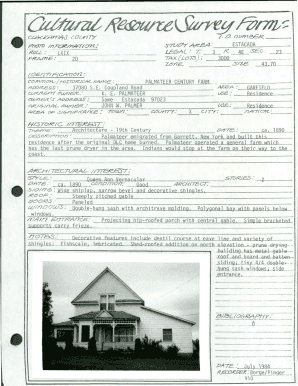 Cultural Resource Survey Form
CLACKAMAS COUNTY I.D. NUMBER
PHOTO INFORMATION: STUDY AREA: ESTACADA
ROLL: LXIX LEGAL: T. 3 R. 4E SEC. 23
FRAME: 20 TAX LOT(S): 3000
ZONE SIZE 43.70
IDENTIFICATION:
COMMON/HISTORIC NAME: PALMATEER CENTURY FARM
ADDRESS: 37040 S.E. Coupland Road AREA: GARFIELD
CURRENT OWNER: K. E. PALMATEER USE: Residence
OWNER'S ADDRESS: Same Estacada 97023
ORIGINAL OWNER: JOHN W. PALMER USE: Residence
AREA OF SIGNIFICANCE: TOWN: COUNTY: X CITY: NATION:
HISTORIC INTEREST:
THEME: Architecture - 19th Century DATE: ca. 1890
DESCRIPTION: Palmateer emigrated from Garrett, New York and built this
residence after the original DLC home burned. Palmateer operated a general farm which
has the last prune dryer in the area. Indians would stop at the farm on their way to the
coast.
ARCHITECTURAL INTEREST:
STYLE: Queen Ann Vernacular STORIES: 2
DATE: ca. 1890 CONDITION: Good ARCHITECT:
SIDING: Wide shiplap, narrow bevel and decorative shingles.
ROOF: Steeply pitched gable
DOORS: Paneled
WINDOWS: Double-hung sash with architrave molding. Polygonal bay with panels below
windows.
MAIN ENTRANCE: Projecting hip-roofed porch with central gable. Simple bracketed
supports carry frieze.
NOTES: Decorative features include dentil course at eave line and variety of
shingles: fishscale, imbricated. Shed-roofed addition on north elevation - prune drying
building has metal gable-
roof and board and batten
siding; tiny 4/4 double-
hung sash windows; side
entrance.
BIBLIOGRAPHY:
0
DATE: July 1984
RECORDER: Borge/Pinger